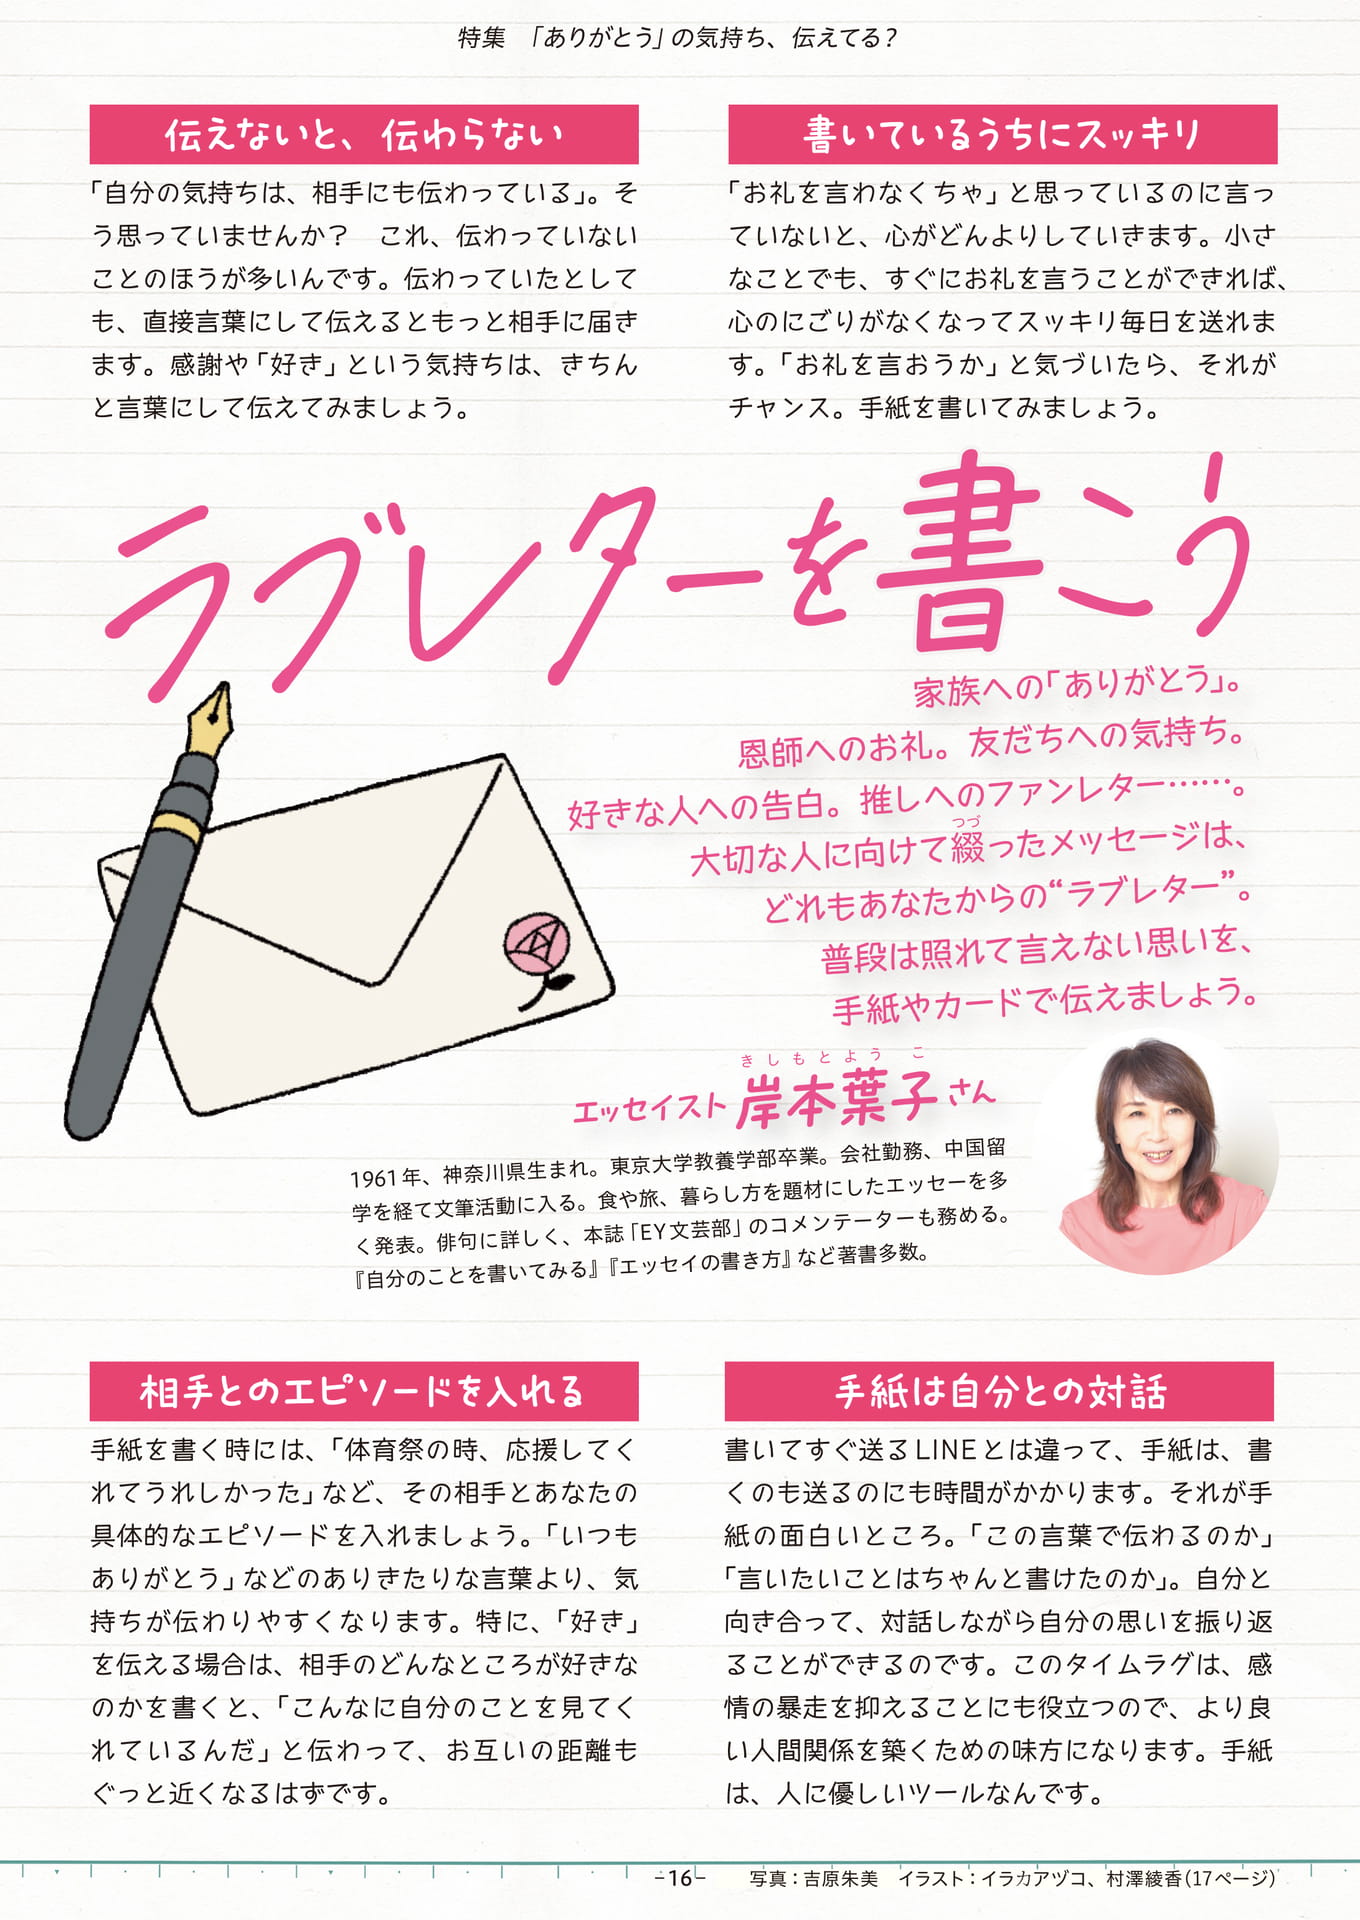 特集　「ありがとう」の気持ち、伝えてる？
伝えないと、伝わらない
「自分の気持ちは、相手にも伝わっている」。そ
う思っていませんか？　これ、伝わっていない
ことのほうが多いんです。伝わっていたとして
も、直接言葉にして伝えるともっと相手に届き
ます。感謝や「好き」という気持ちは、きちん
と言葉にして伝えてみましょう。
書いているうちにスッキリ
「お礼を言わなくちゃ」と思っているのに言っ
ていないと、心がどんよりしていきます。小さ
なことでも、すぐにお礼を言うことができれば、
心のにごりがなくなってスッキリ毎日を送れま
す。「お礼を言おうか」と気づいたら、それが
チャンス。手紙を書いてみましょう。
ラブレターを書こう
家族への「ありがとう」。
恩師へのお礼。友だちへの気持ち。
好きな人への告白。推しへのファンレター……。
つづ
大切な人に向けて綴ったメッセージは、
どれもあなたからの“ラブレター”。
普段は照れて言えない思いを、
手紙やカードで伝えましょう。
きしもとようこ
エッセイスト 岸本葉子さん
1961年、神奈川県生まれ。東京大学教養学部卒業。会社勤務、中国留
学を経て文筆活動に入る。食や旅、暮らし方を題材にしたエッセーを多
く発表。俳句に詳しく、本誌「EY文芸部」のコメンテーターも務める。
『自分のことを書いてみる』『エッセイの書き方』など著書多数。
相手とのエピソードを入れる
手紙を書く時には、「体育祭の時、応援してく
れてうれしかった」など、その相手とあなたの
具体的なエピソードを入れましょう。「いつも
ありがとう」などのありきたりな言葉より、気
持ちが伝わりやすくなります。特に、「好き」
を伝える場合は、相手のどんなところが好きな
のかを書くと、「こんなに自分のことを見てく
れているんだ」と伝わって、お互いの距離も
ぐっと近くなるはずです。
手紙は自分との対話
書いてすぐ送るLINEとは違って、手紙は、書
くのも送るのにも時間がかかります。それが手
紙の面白いところ。「この言葉で伝わるのか」
「言いたいことはちゃんと書けたのか」。自分と
向き合って、対話しながら自分の思いを振り返
ることができるのです。このタイムラグは、感
情の暴走を抑えることにも役立つので、より良
い人間関係を築くための味方になります。手紙
は、人に優しいツールなんです。
-16-
写真：吉原朱美　イラスト：イラカアヅコ、村澤綾香（17ページ）